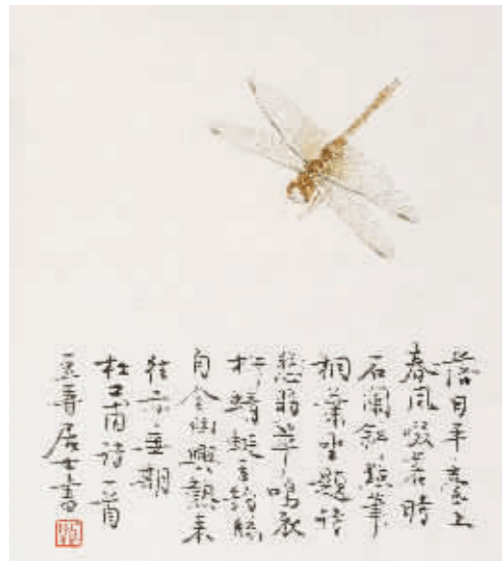 落日平臺上
春風啜茗時
石闌斜點筆
桐葉坐題詩
翡翠鳴衣
桁蜻蜓立釣絲
自今幽興熟来
往亦無期
杜工部詩一首
壽居士書